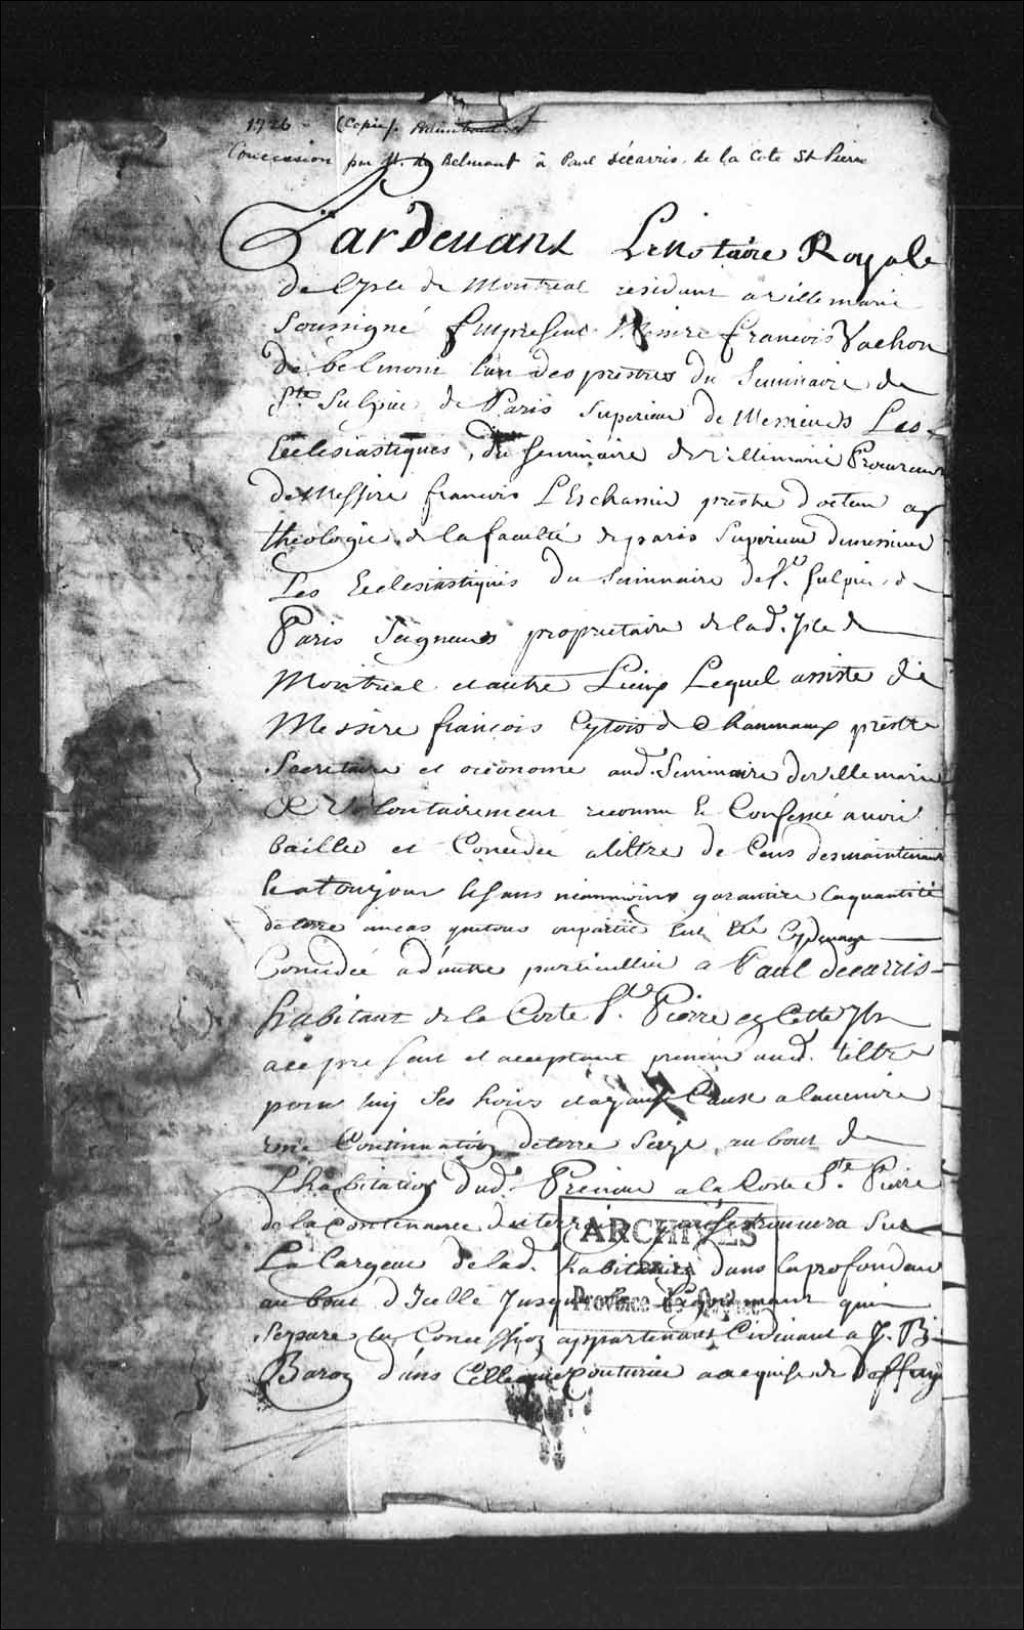 1726 - (Copie).
Concession par M. de Belmont à Paul décarris de la Cote St Pierre
Pardevant Le Notaire Royale
de l'Isle de Montreal residant a villemarie
Soussigné fut present Messire francois Vachon
de belmont l'un des prestres du Seminaire de
St. Sulpice de Paris Superieur de Messieurs Les
Ecclesiastiques, du Seminaire de villemarie Procureur
de Messire francois LEschassier prestre docteur en
theologie de la faculté de paris Superieur de messieurs
Les Ecclesiastiques du Seminaire de St. Sulpice de
Paris Seigneurs proprietaire de lad. Isle de
Montreal et autre Lieux Lequel assiste de
Messire francois Cytois de Chaumaux prestre
Secretaire et oeconome aud. Seminaire de villemarie
a volontairement reconnu & Confessé avoir
baillée et Concedée a tiltre de Cens des maintenant
& a toujour & sans neanmoins garantire la quantité
de terre en cas que tous ou partie Eut Ete Cydevant
Concedée a d'autre particullier a Paul decarris
habitant de la Coste St. Pierre en Cette Isle
a ce present et acceptant preneur aud. tiltre
pour luy Ses hoirs et ayant Cause a l'avenire
une Continuation de terre Size au bout de
L'habitation dud. Preneur a la Coste St. Pierre
de la Contenance du terrein qui Se trouvera Sur
La largeur de lad. habitation dans la profondeur
au bout d'Icelle Jusqu'a qui
Separe la Concession appartenant Cidevant a J. B.
Baron dans Celle que Couturier a acquise de
ARCHIVES
DE LA
Province de Québec